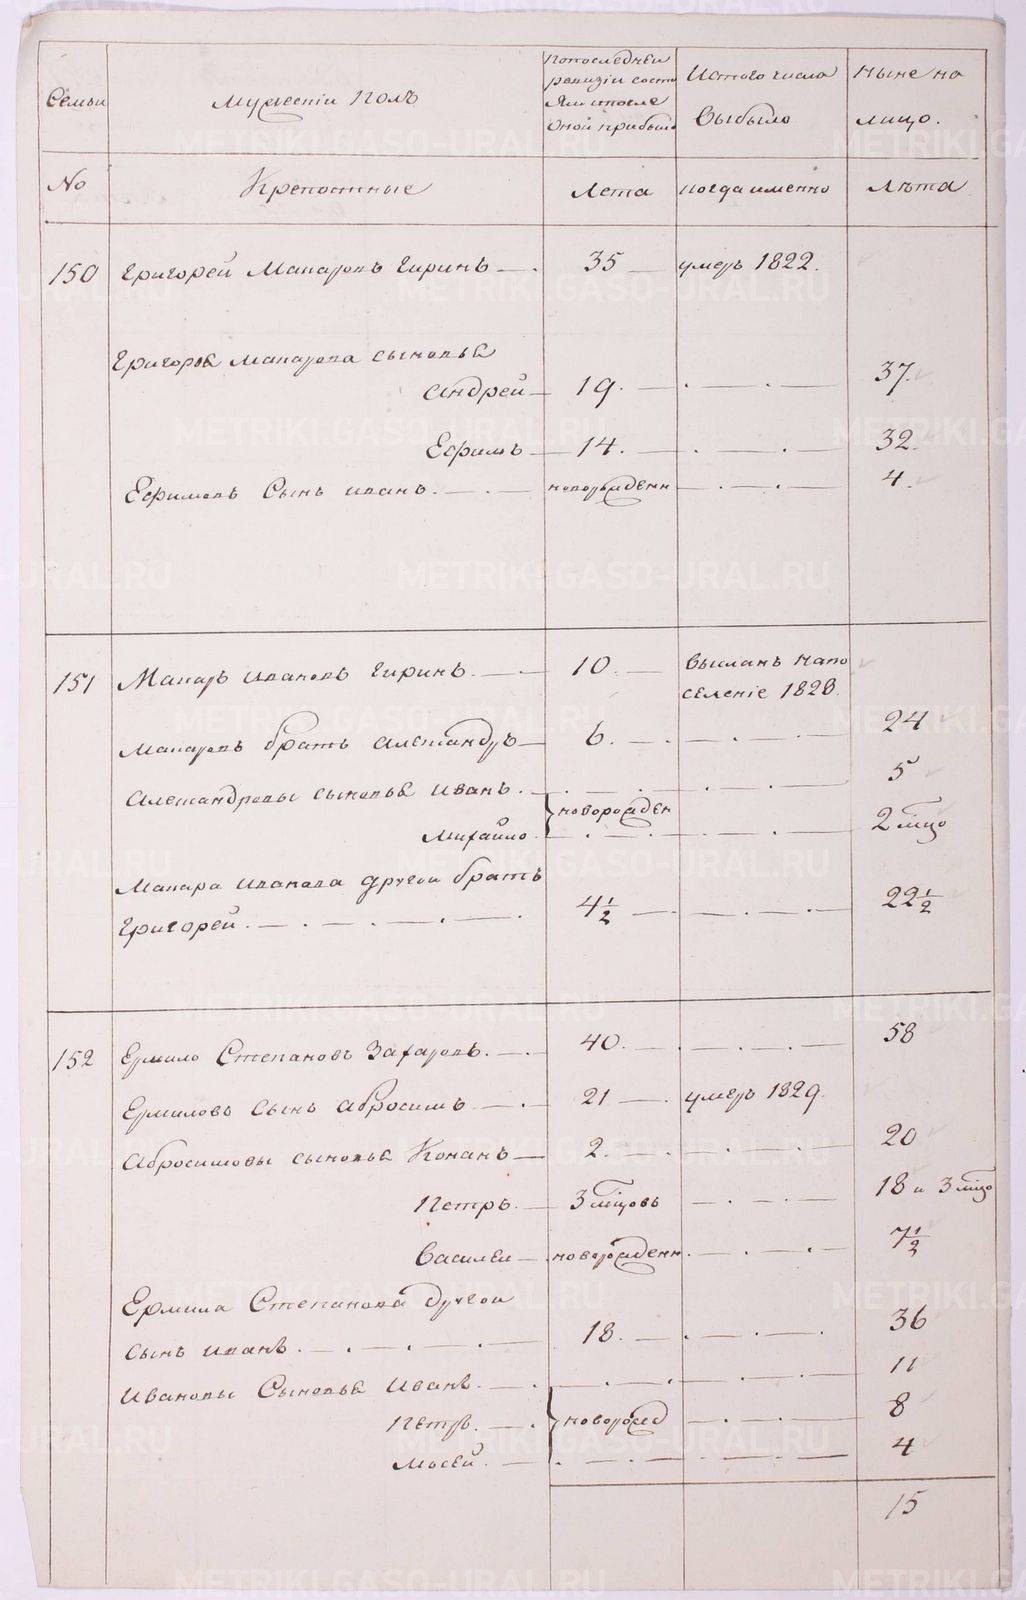 Семьи
Мужескій Полъ
Попоследней ревизіи состо яли ипосле Оной прибыло
Истого числа Выбыло
Ныне на лицо.
No
Крепостные
Лета
когда именно
Лѣта
150 Григорей Макаровъ Гиринъ 35 умеръ 1822.
Григорья Макарова сыновья
Андрей 19. 37.
Ефимъ 14. 32.
Ефимовъ Сынъ иванъ. новорожденн 4.
151 Макаръ ивановъ Гиринъ. 10. высланъ напо
селеніе 1828.
Макаровъ братъ александръ 6. 24
александровы сыновья иванъ. 5
новорожден
Михайло 2 мѣцо
Макара иванова другой братъ
Григорей. 4½ 22½
152 Ермило Степановъ Захаровъ. 40. 58
Ермиловъ сынъ абросимъ. 21 умеръ 1829.
абросимовы сыновья Кононъ 2. 20
Петръ. 3 мѣцовъ 18 и 3 мѣцо
Василеи новорожденн 7½
Ермила Степанова другои
сынъ иванъ. 18. 36
Ивановы Сыновья Иванъ. 11
Петръ. новорожд 8
Мосей. 4
15
METRIKI.GASO-URAL.RU